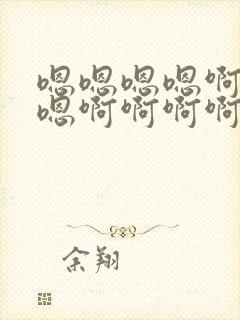 嗯嗯嗯嗯啊
嗯啊啊啊啊
余翔